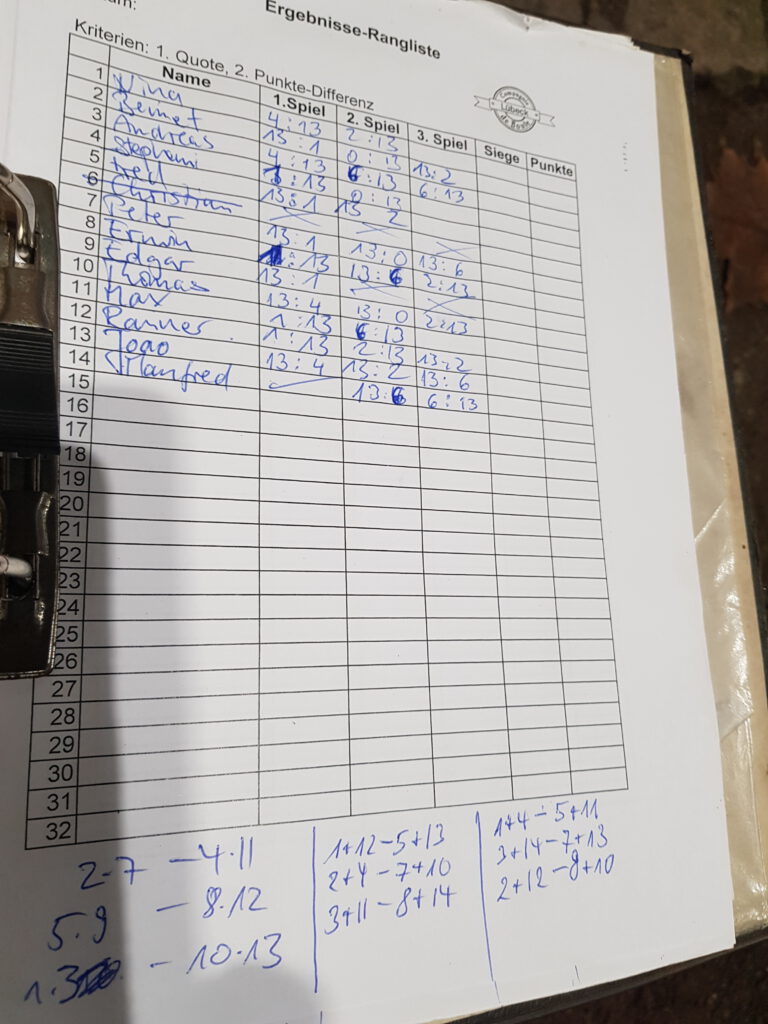 Ergebnisse-Rangliste
Kriterien: 1. Quote, 2. Punkte-Differenz
Name 1.Spiel 2. Spiel 3. Spiel Siege Punkte
Compagnie Lübeck de Boule
1 Nina 4:13 2:13
2 13:1 0:13 13:2
3 Andreas 4:13 6:13 6:13
4 Stephani 1:13 0:13
5 13:1 13 2
6 Christian
7 Peter 13:1 13:0 13:6
8 Erwin 1:13 13:6 2:13
9 Edgar 13:1
10 Thomas 13:4 13:0 2:13
11 Max 1:13 6:13
12 Rainer 1:13 2:13 13:2
13 Joao 13:4 13:2 13:6
14 Manfred 13:6 6:13
15
16
17
18
19
20
21
22
23
24
25
26
27
28
29
30
31
32
2-7 – 4.11
5.9 – 8.12
1.3 – 10.13
1+12 – 5+13
2+4 – 7+10
3+11 – 8+14
1+4 – 5+11
3+14 – 7+13
2+12 – 8+10